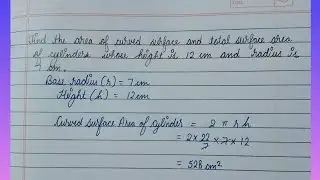 Find the area of curved surface and total surface area
of cylinders whose height is 12 cm and radius is
7 cm.
Base radius (r) = 7 cm
Height (h) = 12cm
Curved Surface Area of cylinder = 2 π r h
= 2 x 22/7 x 7 x 12
= 528 cm²